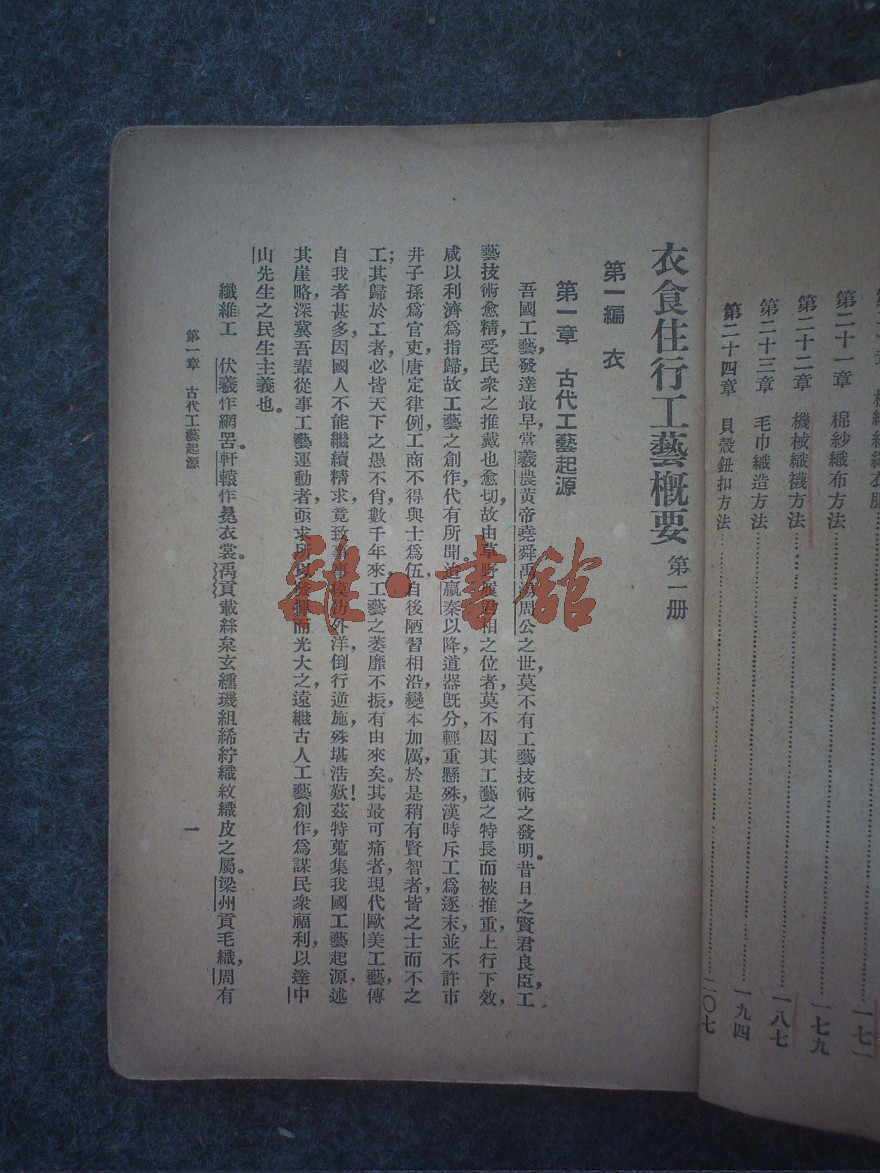 第二十一章 棉紗織布方法 一七一
第二十二章 機械織襪方法 一七九
第二十三章 毛巾織造方法 一八七
第二十四章 貝殼鈕扣方法 一九四
二〇七
衣食住行工藝概要 第一册
第一編 衣
第一章 古代工藝起源
吾國工藝發達最早當羲農黃帝堯舜禹湯周公之世，莫不有工藝技術之發明。昔日之賢君良臣，工
藝技術愈精，受民衆之推戴也愈切，故由草野 君相之位者，莫不因其工藝之特長而被推重，上行下效，
咸以利濟爲指歸，故工藝之創作，代有所聞。迨嬴秦以降，道器旣分，輕重懸殊，漢時斥工爲逐末，並不許市
井子孫爲官吏，唐定律例，工商不得與士爲伍，自後陋習相沿，變本加厲，於是稍有賢智者，皆之士而不之
工；其歸於工者，必皆天下之愚不肖，數千年來，工藝之萎靡不振，有由來矣。其最可痛者，現代歐美工藝，傳
自我者甚多，因國人不能繼續精求，竟致事事模仿外洋，倒行逆施，殊堪浩歎！茲特蒐集我國工藝起源，述
其崖略，深冀吾輩從事工藝運動者，亟求所以發揮而光大之，遠繼古人工藝創作，爲謀民衆福利，以達中
山先生之民生主義也。
纖維工 伏羲作網罟。軒轅作冕衣裳。禹貢載絲枲玄纁璣組絺紵織紋織皮之屬。梁州貢毛織，周有
第一章 古代工藝起源
一
雜·書館